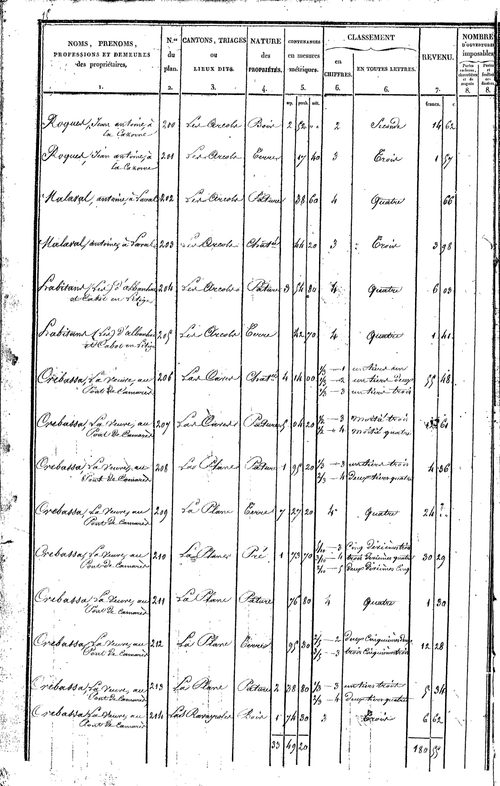 NOMS, PRENOMS,
PROFESSIONS ET DEMEURES
des propriétaires.
1.
N.os
du
plan.
2.
CANTONS, TRIAGES
ou
LIEUX DITS.
3.
NATURE
des
PROPRIÉTÉS.
4.
CONTENANCES
en mesures
métriques.
5.
CLASSEMENT
en
CHIFFRES.
6.
EN TOUTES LETTRES.
6.
REVENU.
7.
NOMBRE
D'OUVERTURES
imposables
8.
8.
francs. c
Roques, Jean antoine, à 200 Les Arcols Bois 2 52 2 Seconde 14 62
la Cazorne
Roques, Jean antoine, à 201 Les Arcols Terre 17 40 3 Trois 1 57
la Cazorne
Malaval, antoine, à Laval 202 Les Arcols Pâture 38 60 4 Quatre 66
Malaval, antoine, à Laval 203 Les Arcols 44 20 3 Trois 3 98
204 Les Arcols Pâture 3 54 80 4 Quatre 6 03
205 Les Arcols Terre 42 70 4 Quatre 1 41
Crebassa, La Veuve, au 206 4 14 00 1/3 - 1 un tiers un 55 48
Pont de Camarès 1/3 - 2 un tiers deux
1/3 - 3 un tiers trois
Crebassa, La Veuve, au 207 Pâture 5 04 20 1/2 - 3 moitié trois 61
Pont de Camarès 1/2 - 4 moitié quatre
Crebassa, La Veuve, au 208 La Plane Pâture 1 95 20 1/3 - 3 un tiers trois 4 36
Pont de Camarès 2/3 - 4 deux tiers quatre
Crebassa, La Veuve, au 209 La Plane Terre 7 27 20 4 Quatre 24
Pont de Camarès
Crebassa, La Veuve, au 210 La Plane Pré 1 73 70 5/10 - 3 cinq dixièmes trois 30 29
Pont de Camarès 3/10 - 4 trois dixièmes quatre
2/10 - 5 deux dixièmes cinq
Crebassa, La Veuve, au 211 La Plane Pâture 76 80 4 Quatre 1 30
Pont de Camarès
Crebassa, La Veuve, au 212 La Plane Terre 95 30 2/5 - 2 deux cinquièmes deux 12 28
Pont de Camarès 3/5 - 3 trois cinquièmes trois
Crebassa, La Veuve, au 213 La Plane Pâture 2 38 80 1/3 - 3 un tiers trois 5 34
Pont de Camarès 2/3 - 4 deux tiers quatre
Crebassa, La Veuve, au 214 Bois 1 74 30 3 Trois 6 62
Pont de Camarès
33 49 20 180 55